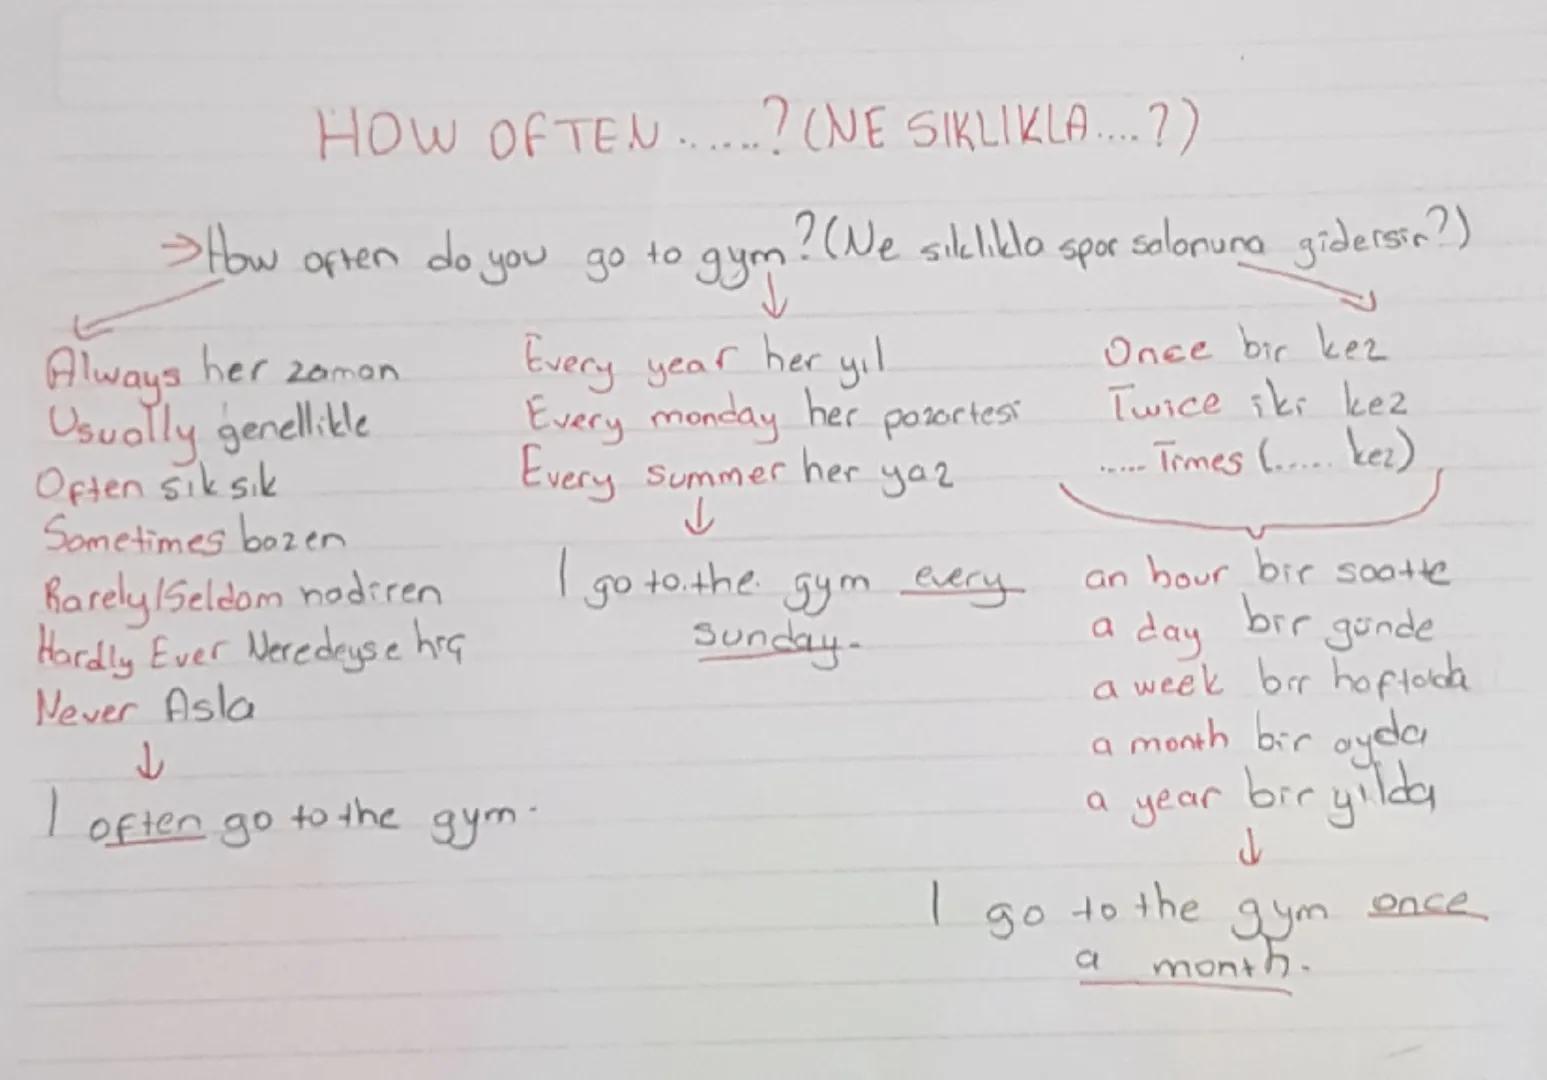 HOW OFTEN ......? (NE SIKLIKLA ....?)
→ How often do you go to gym? (Ne sıklıkla spor salonuna gidersin?)
Always her zaman
Usually genellikle
Often sık sık
Sometimes bazen
Rarely/Seldom nadiren
Hardly Ever Neredeyse hiç
Never Asla
↓
I often go to the gym.
↓
Every year her yıl
Every monday her pazartesi
Every summer her yaz
↓
I go to the gym every
sunday.
Once bir kez
Twice iki kez
..... Times (..... kez)
an hour bir saatte
a day bir günde
a week bir haftada
a month bir ayda
a year bir yılda
↓
I go to the gym once
a month.